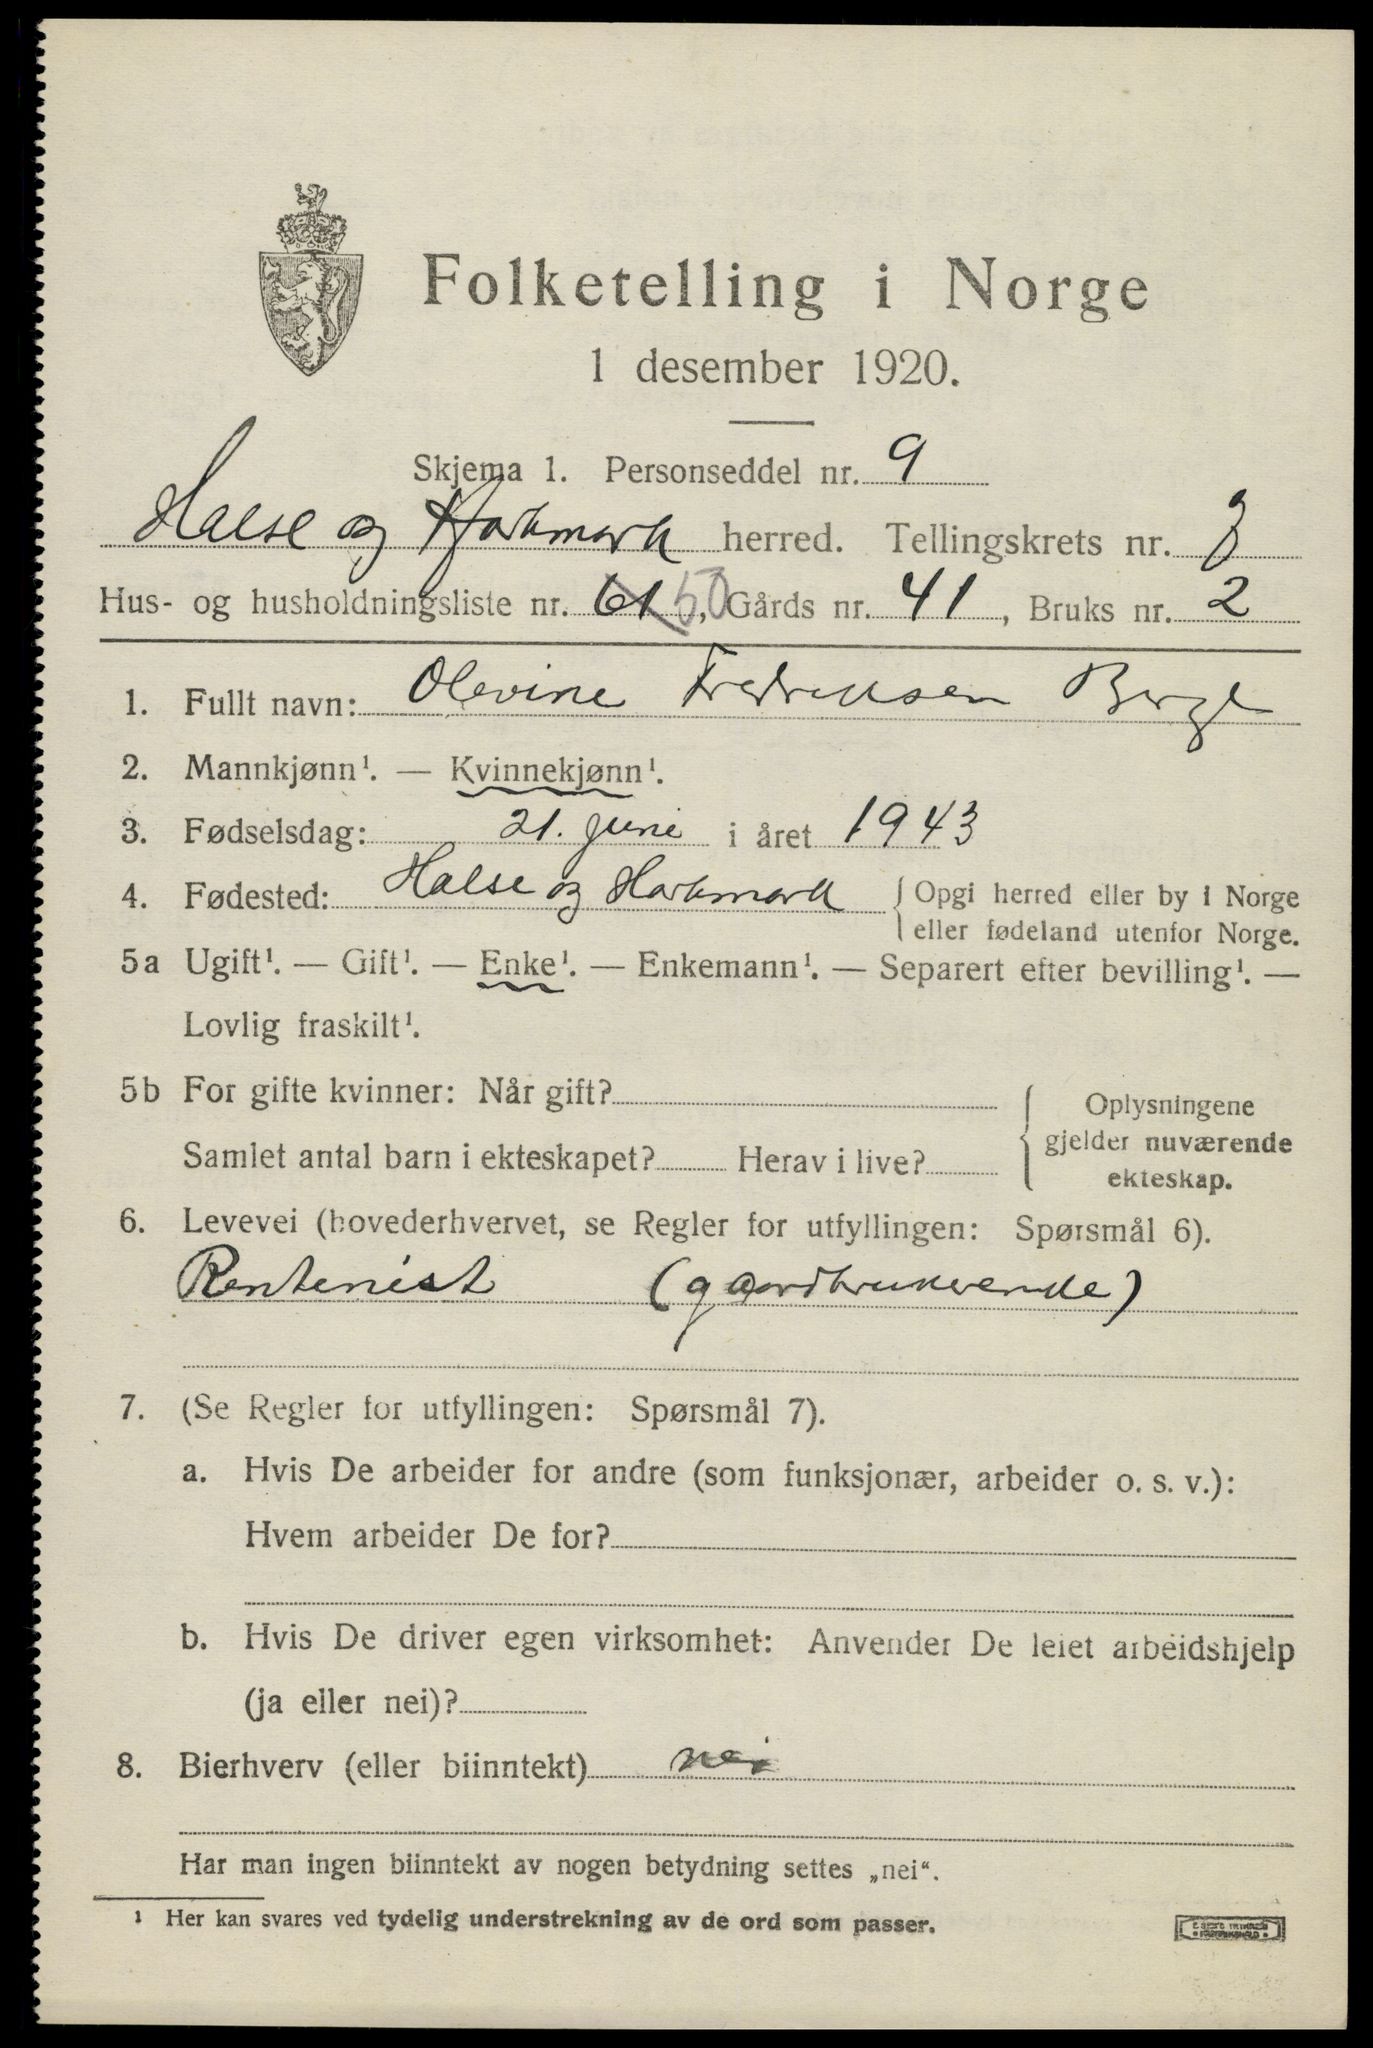 Folketelling i Norge
1 desember 1920.
Skjema 1. Personseddel nr. 9
Halse og Harkmark herred. Tellingskrets nr. 3
Hus- og husholdningsliste nr. 61 50, Gårds nr. 41, Bruks nr. 2
1. Fullt navn: Olevine Fredriksen Berge
2. Mannkjønn¹. — Kvinnekjønn¹.
3. Fødselsdag: 21. juni i året 1943
4. Fødested: Halse og Harkmark { Opgi herred eller by i Norge
eller fødeland utenfor Norge.
5a Ugift¹. — Gift¹. — Enke¹. — Enkemann¹. — Separert efter bevilling¹. —
Lovlig fraskilt¹.
5b For gifte kvinner: Når gift?
Samlet antal barn i ekteskapet? Herav i live?
Oplysningene
gjelder nuværende
ekteskap.
6. Levevei (hovederhvervet, se Regler for utfyllingen: Spørsmål 6).
Rentenist (gaardbrukerenke)
7. (Se Regler for utfyllingen: Spørsmål 7).
a. Hvis De arbeider for andre (som funksjonær, arbeider o. s. v.):
Hvem arbeider De for?
b. Hvis De driver egen virksomhet: Anvender De leiet arbeidshjelp
(ja eller nei)?
8. Bierhverv (eller biinntekt) nei
Har man ingen biinntekt av nogen betydning settes „nei“.
¹ Her kan svares ved tydelig understrekning av de ord som passer.